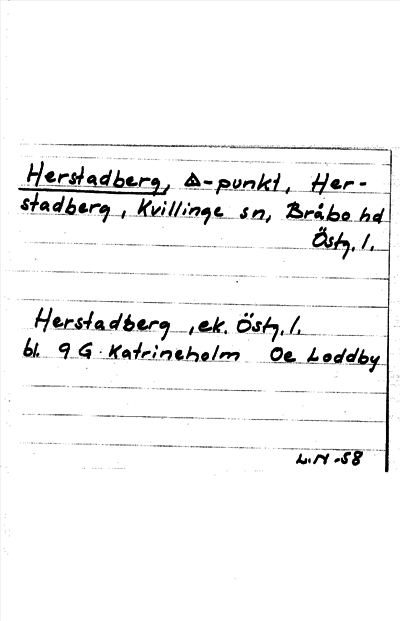 Herstadberg, △-punkt, Her-
stadberg, Kvillinge sn, Bråbo hd
Östg. l.
Herstadberg, ek. Östg. l.
bl. 9 G Katrineholm Oe Loddby
L.N -58